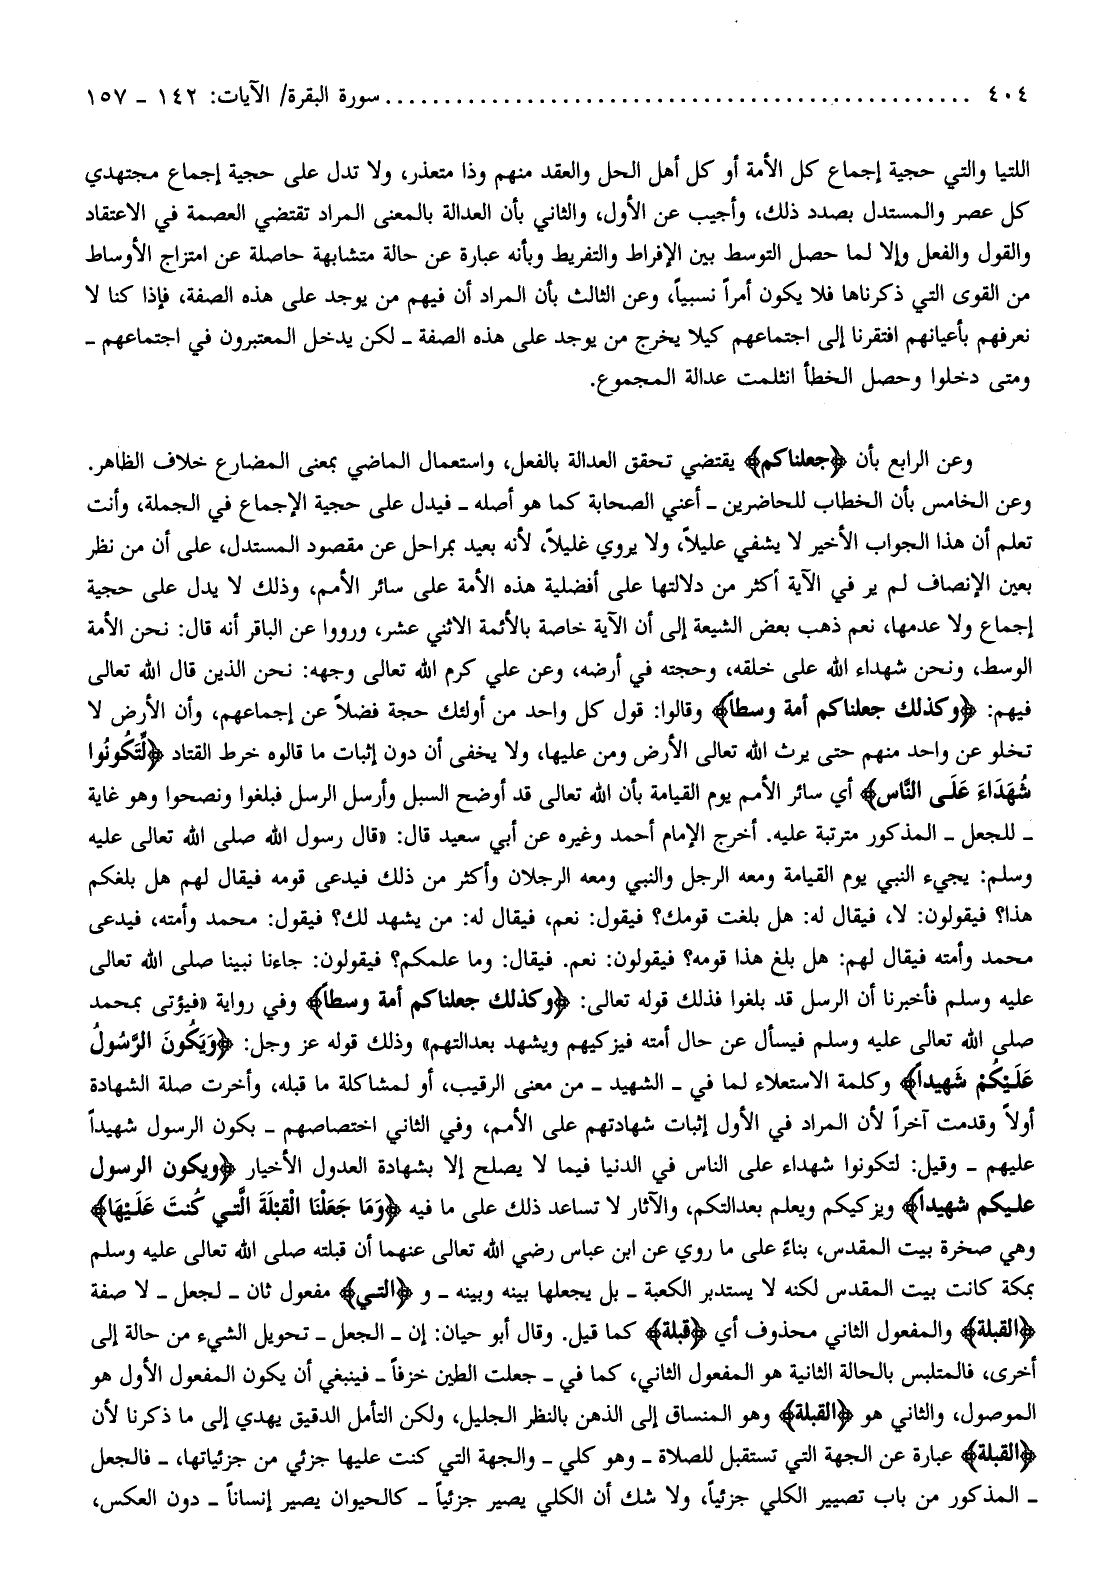 ٤٠٤ ................................................ سورة البقرة/ الآيات: ١٤٢ ـ ١٥٧
اللتيا والتي حجية إجماع كل الأمة أو كل أهل الحل والعقد منهم وذا متعذر، ولا تدل على حجية إجماع مجتهدي
كل عصر والمستدل بصدد ذلك، وأجيب عن الأول، والثاني بأن العدالة بالمعنى المراد تقتضي العصمة في الاعتقاد
والقول والفعل وإلا لما حصل التوسط بين الإفراط والتفريط وبأنه عبارة عن حالة متشابهة حاصلة عن امتزاج الأوساط
من القوى التي ذكرناها فلا يكون أمراً نسبياً، وعن الثالث بأن المراد أن فيهم من يوجد على هذه الصفة، فإذا كنا لا
نعرفهم بأعيانهم افتقرنا إلى اجتماعهم كيلا يخرج من يوجد على هذه الصفة ـ لكن يدخل المعتبرون في اجتماعهم ـ
ومتى دخلوا وحصل الخطأ انثلمت عدالة المجموع.
وعن الرابع بأن ﴿جعلناكم﴾ يقتضي تحقق العدالة بالفعل، واستعمال الماضي بمعنى المضارع خلاف الظاهر.
وعن الخامس بأن الخطاب للحاضرين ـ أعني الصحابة كما هو أصله ـ فيدل على حجية الإجماع في الجملة، وأنت
تعلم أن هذا الجواب الأخير لا يشفي عليلاً، ولا يروي غليلاً، لأنه بعيد بمراحل عن مقصود المستدل، على أن من نظر
بعين الإنصاف لم ير في الآية أكثر من دلالتها على أفضلية هذه الأمة على سائر الأمم، وذلك لا يدل على حجية
إجماع ولا عدمها، نعم ذهب بعض الشيعة إلى أن الآية خاصة بالأئمة الاثني عشر، ورووا عن الباقر أنه قال: نحن الأمة
الوسط، ونحن شهداء الله على خلقه، وحجته في أرضه، وعن علي كرم الله تعالى وجهه: نحن الذين قال الله تعالى
فيهم: ﴿وكذلك جعلناكم أمة وسطاً﴾ وقالوا: قول كل واحد من أولئك حجة فضلاً عن إجماعهم، وأن الأرض لا
تخلو عن واحد منهم حتى يرث الله تعالى الأرض ومن عليها، ولا يخفى أن دون إثبات ما قالوه خرط القتاد ﴿لِّتَكُونُوا
شُهَدَاءَ عَلَى النَّاس﴾ أي سائر الأمم يوم القيامة بأن الله تعالى قد أوضح السبل وأرسل الرسل فبلغوا ونصحوا وهو غاية
ـ للجعل ـ المذكور مترتبة عليه. أخرج الإمام أحمد وغيره عن أبي سعيد قال: «قال رسول الله صلى الله تعالى عليه
وسلم: يجيء النبي يوم القيامة ومعه الرجل والنبي ومعه الرجلان وأكثر من ذلك فيدعى قومه فيقال لهم هل بلغكم
هذا؟ فيقولون: لا، فيقال له: هل بلغت قومك؟ فيقول: نعم، فيقال له: من يشهد لك؟ فيقول: محمد وأمته، فيدعى
محمد وأمته فيقال لهم: هل بلغ هذا قومه؟ فيقولون: نعم. فيقال: وما علمكم؟ فيقولون: جاءنا نبينا صلى الله تعالى
عليه وسلم فأخبرنا أن الرسل قد بلغوا فذلك قوله تعالى: ﴿وكذلك جعلناكم أمة وسطاً﴾ وفي رواية «فيؤتى بمحمد
صلى الله تعالى عليه وسلم فيسأل عن حال أمته فيزكيهم ويشهد بعدالتهم» وذلك قوله عز وجل: ﴿وَيَكُونَ الرَّسُولُ
عَلَيْكُمْ شَهِيداً﴾ وكلمة الاستعلاء لما في ـ الشهيد ـ من معنى الرقيب، أو لمشاكلة ما قبله، وأخرت صلة الشهادة
أولاً وقدمت آخراً لأن المراد في الأول إثبات شهادتهم على الأمم، وفي الثاني اختصاصهم ـ بكون الرسول شهيداً
عليهم ـ وقيل: لتكونوا شهداء على الناس في الدنيا فيما لا يصلح إلا بشهادة العدول الأخيار ﴿ويكون الرسول
عليكم شهيداً﴾ ويزكيكم ويعلم بعدالتكم، والآثار لا تساعد ذلك على ما فيه ﴿وَمَا جَعَلْنَا الْقبْلَةَ الَّتي كُنتَ عَلَيْهَا﴾
وهي صخرة بيت المقدس، بناءً على ما روي عن ابن عباس رضي الله تعالى عنهما أن قبلته صلى الله تعالى عليه وسلم
بمكة كانت بيت المقدس لكنه لا يستدبر الكعبة ـ بل يجعلها بينه وبينه ـ و ﴿التي﴾ مفعول ثان ـ لجعل ـ لا صفة
﴿القبلة﴾ والمفعول الثاني محذوف أي ﴿قبلة﴾ كما قيل. وقال أبو حيان: إن ـ الجعل ـ تحويل الشيء من حالة إلى
أخرى، فالمتلبس بالحالة الثانية هو المفعول الثاني، كما في ـ جعلت الطين خزفاً ـ فينبغي أن يكون المفعول الأول هو
الموصول، والثاني هو ﴿القبلة﴾ وهو المنساق إلى الذهن بالنظر الجليل، ولكن التأمل الدقيق يهدي إلى ما ذكرنا لأن
﴿القبلة﴾ عبارة عن الجهة التي تستقبل للصلاة ـ وهو كلي ـ والجهة التي كنت عليها جزئي من جزئياتها، ـ فالجعل
ـ المذكور من باب تصيير الكلي جزئياً، ولا شك أن الكلي يصير جزئياً ـ كالحيوان يصير إنساناً ـ دون العكس،